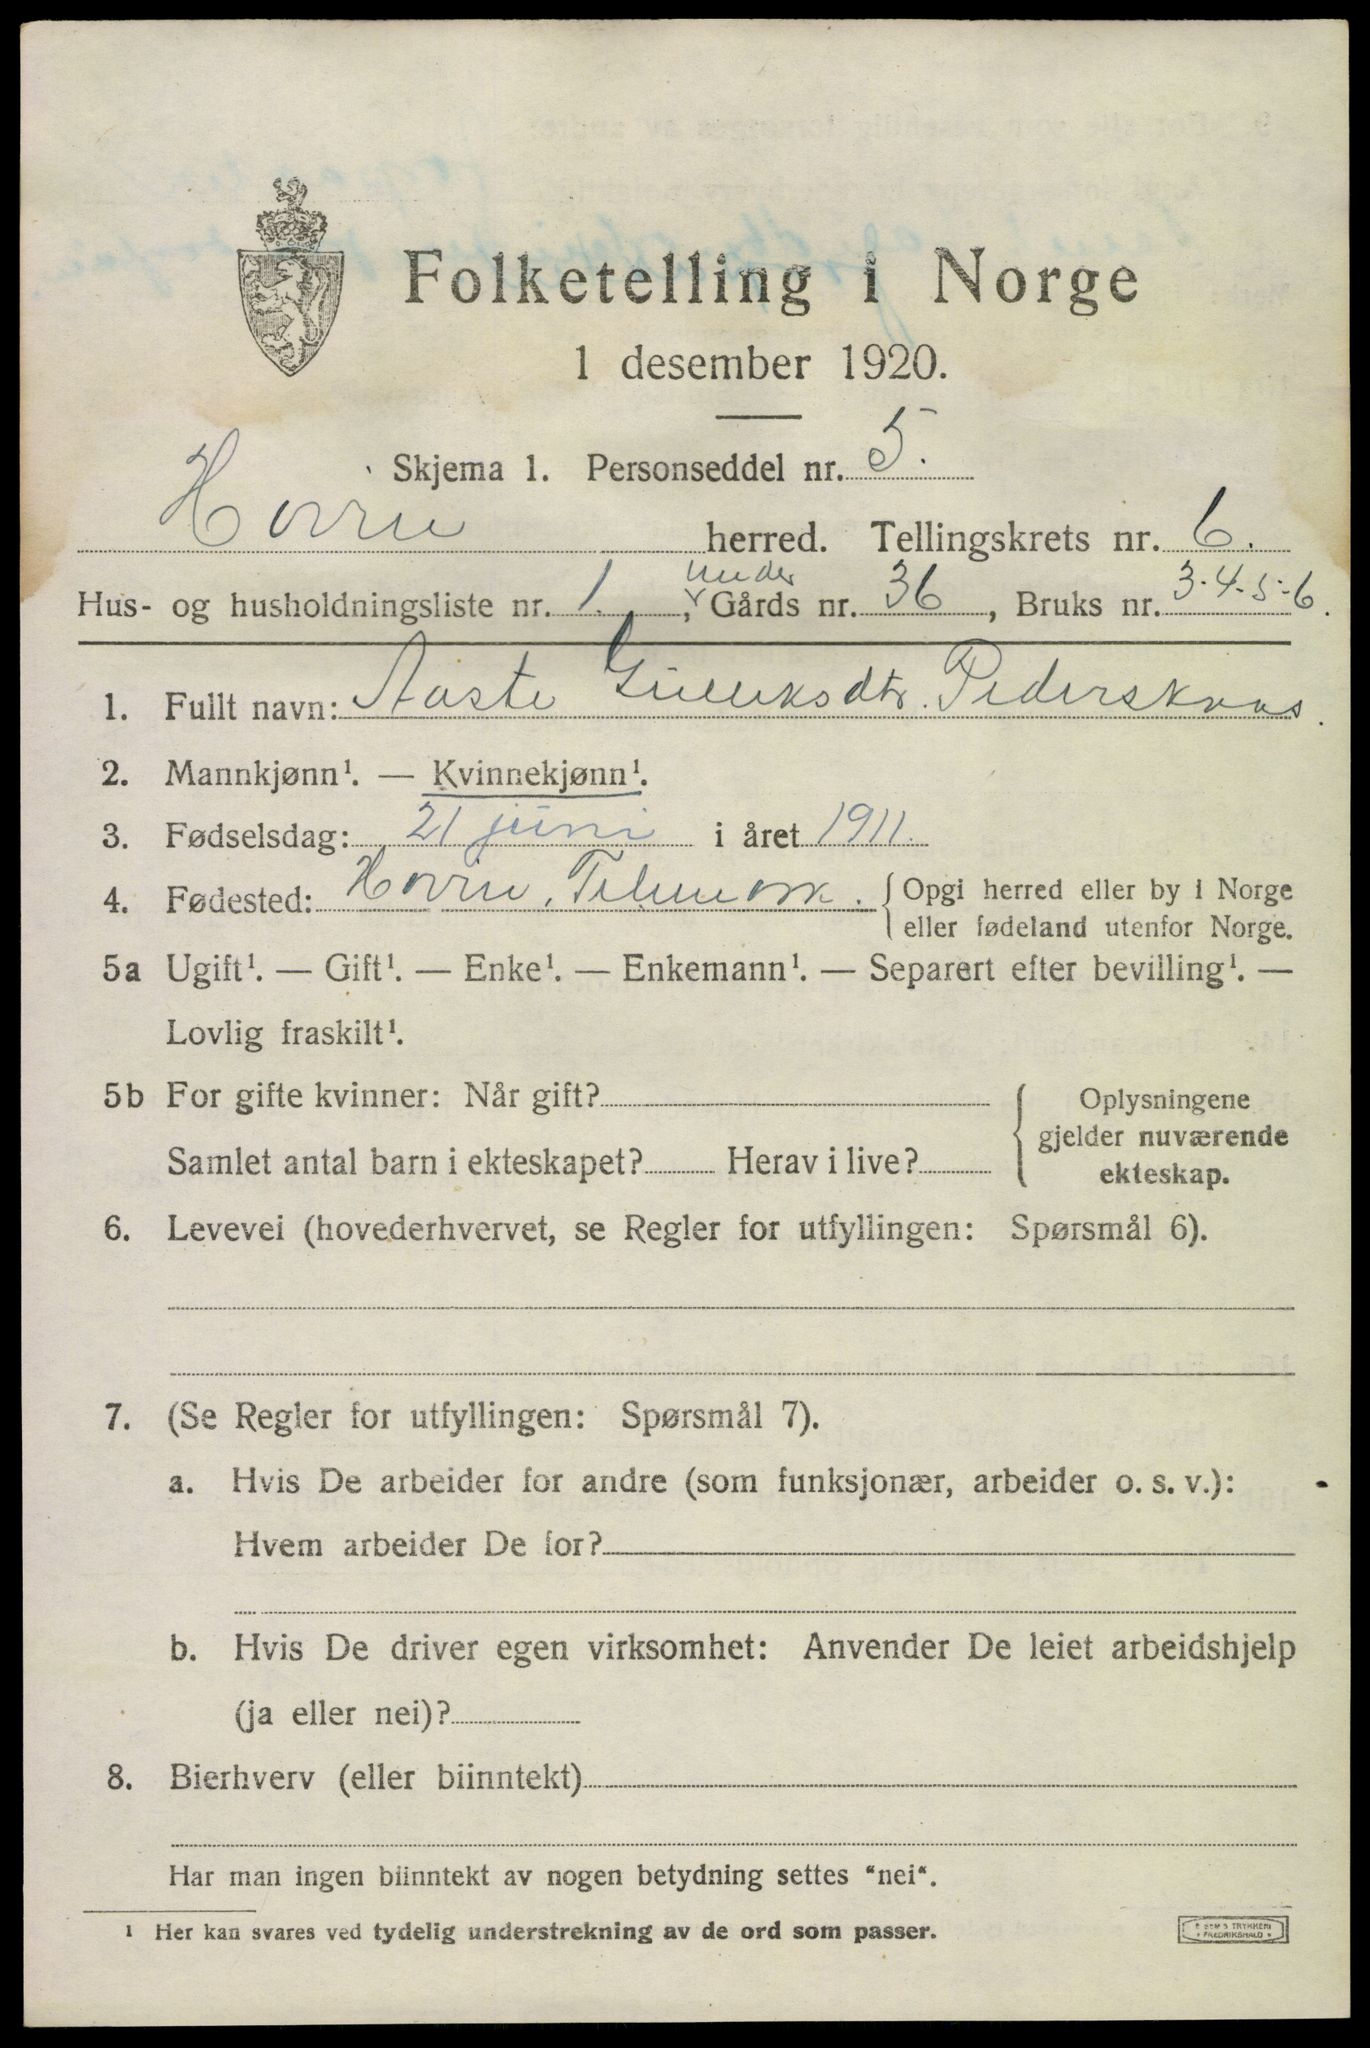 Folketelling i Norge
1 desember 1920.
Skjema 1. Personseddel nr. 5.
Hovin herred. Tellingskrets nr. 6.
under
Hus- og husholdningsliste nr. 1., Gårds nr. 36, Bruks nr. 3-4-5-6.
1. Fullt navn: Aaste Gulliksdtr. Pederskaas.
2. Mannkjønn¹. — Kvinnekjønn¹.
3. Fødselsdag: 21 juni i året 1911.
4. Fødested: Hovin, Telemark. Opgi herred eller by i Norge
eller fødeland utenfor Norge.
5a Ugift¹. — Gift¹. — Enke¹. — Enkemann¹. — Separert efter bevilling¹. —
Lovlig fraskilt¹.
5b For gifte kvinner: Når gift?
Samlet antal barn i ekteskapet? Herav i live?
Oplysningene
gjelder nuværende
ekteskap.
6. Levevei (hovederhvervet, se Regler for utfyllingen: Spørsmål 6).
7. (Se Regler for utfyllingen: Spørsmål 7).
a. Hvis De arbeider for andre (som funksjonær, arbeider o. s. v.):
Hvem arbeider De for?
b. Hvis De driver egen virksomhet: Anvender De leiet arbeidshjelp
(ja eller nei)?
8. Bierhverv (eller biinntekt)
Har man ingen biinntekt av nogen betydning settes "nei".
¹ Her kan svares ved tydelig understrekning av de ord som passer.
TRYKKERI
FREDRIKSHALD